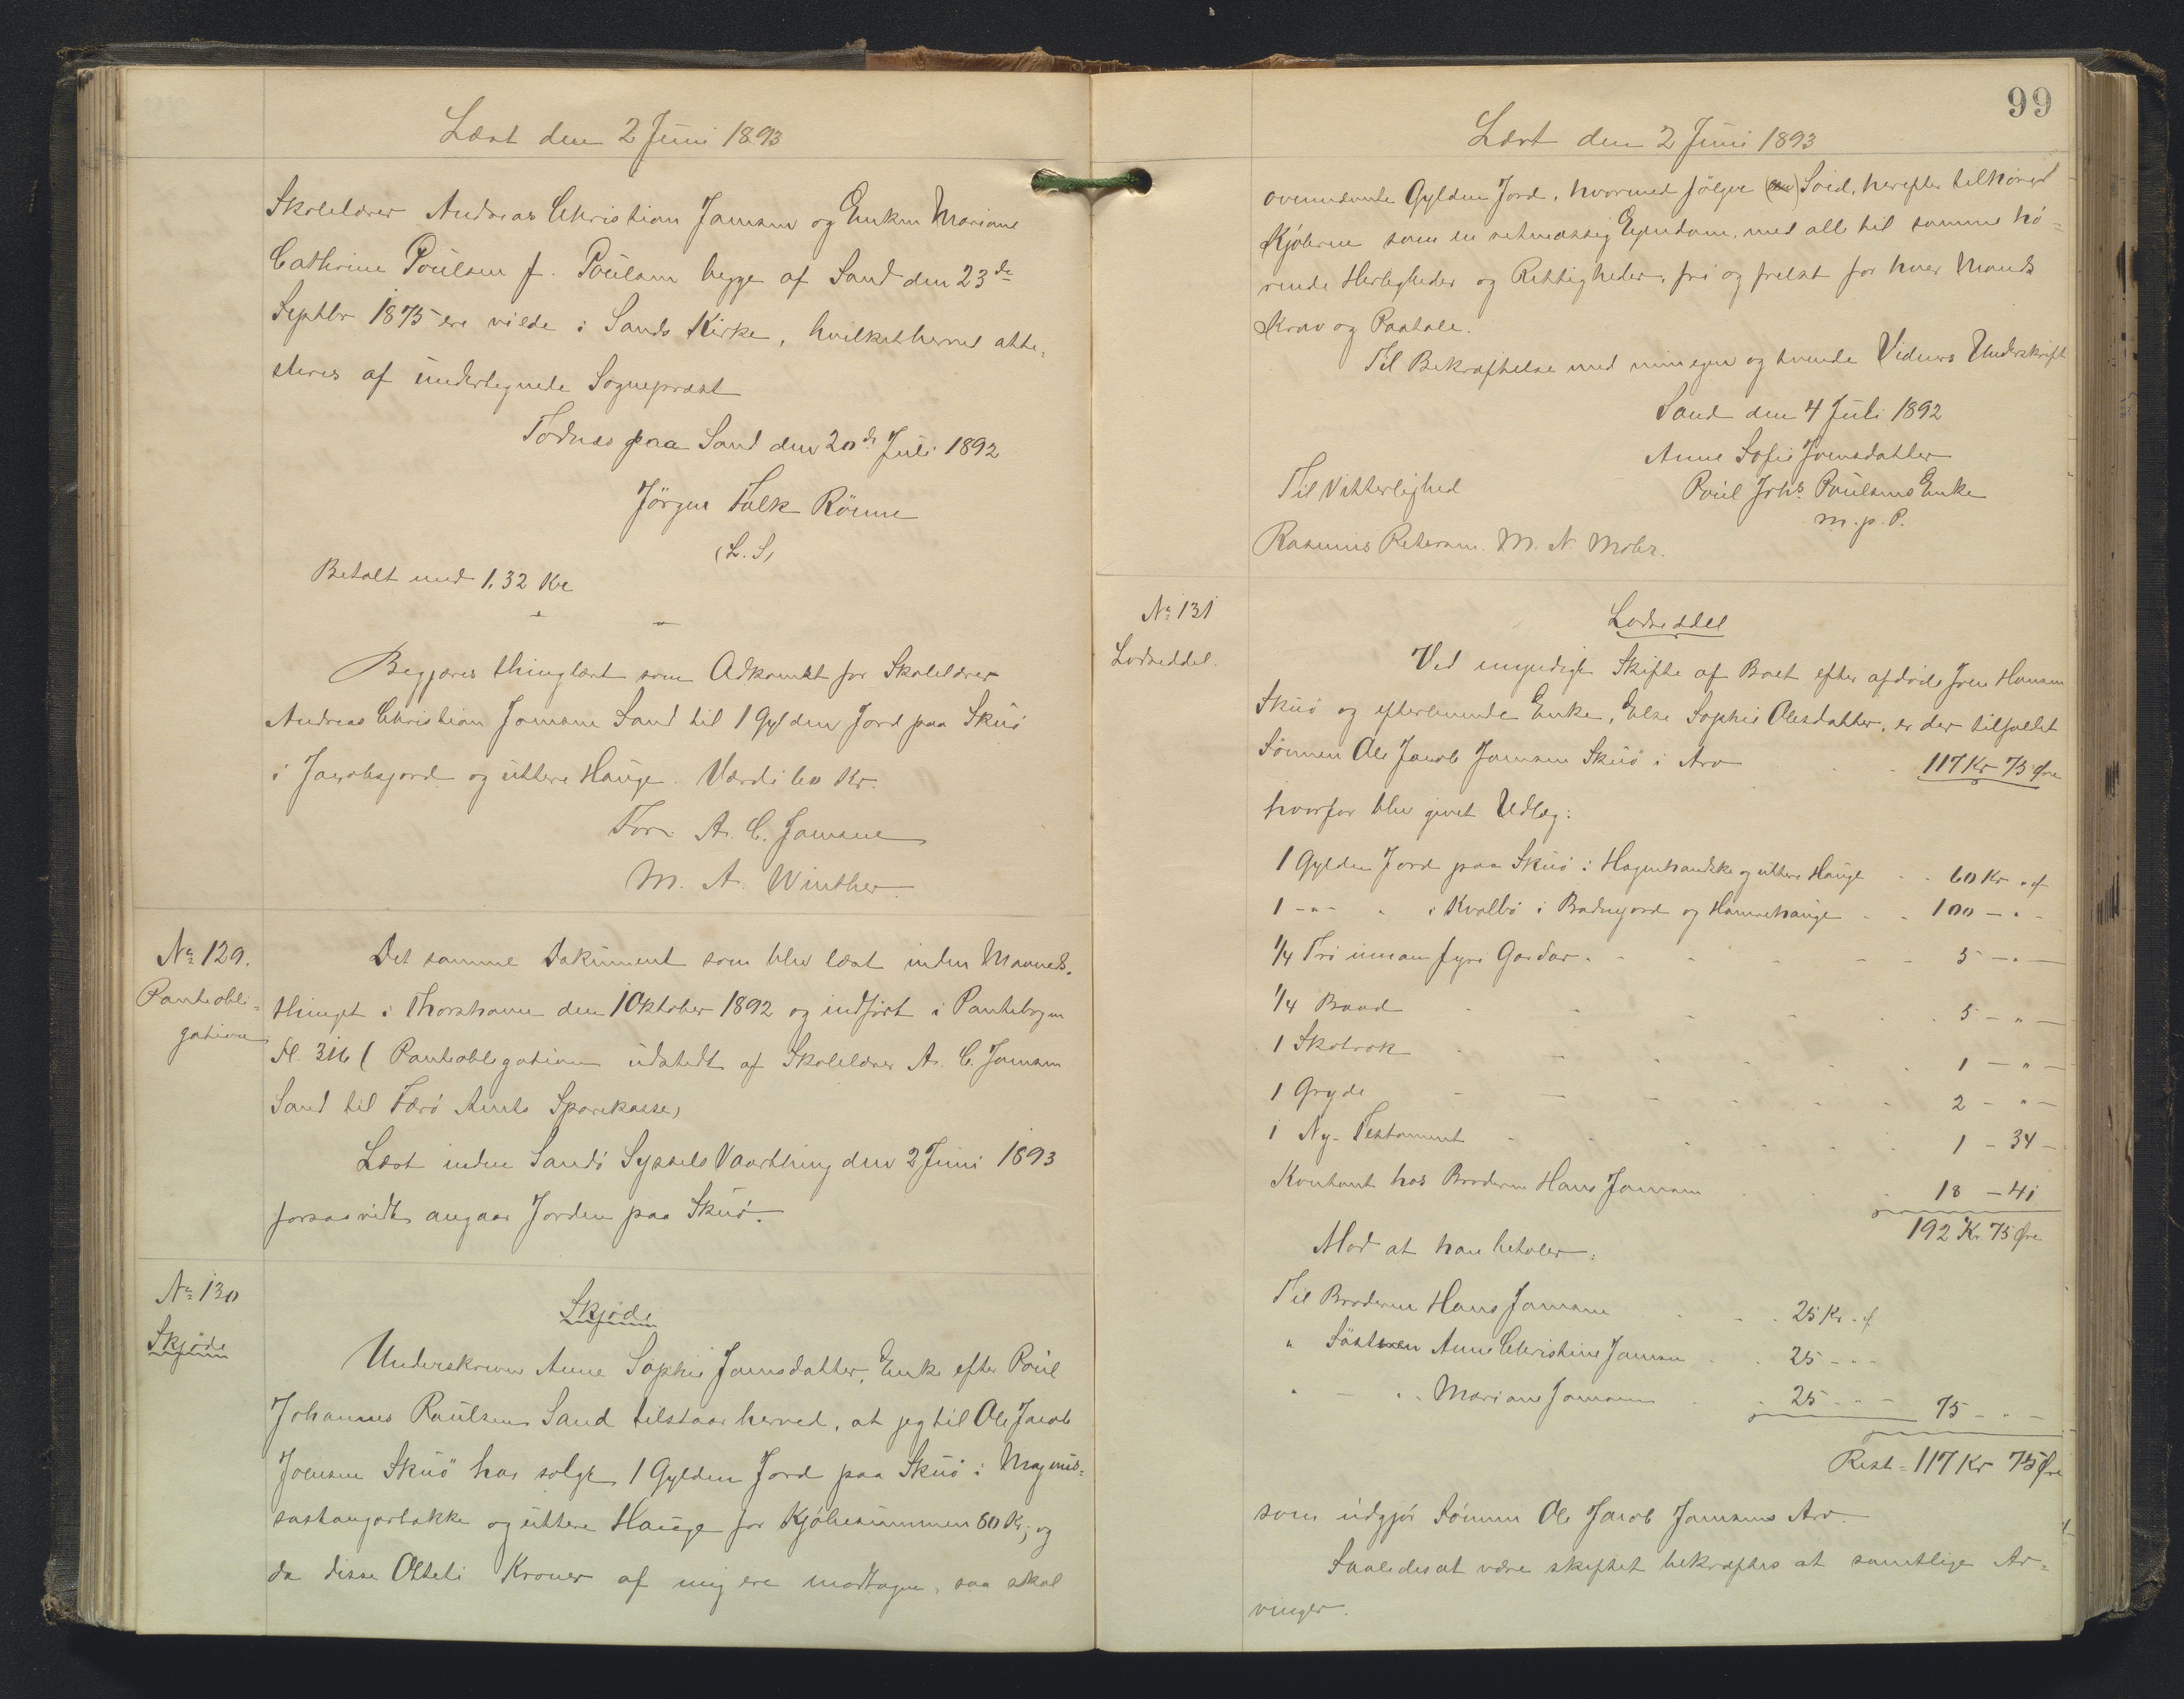 Læst den 2 Juni 1893
Skolelærer Andreas Christian Joensen og Enken Mariane
Cathrine Poulsen f. Poulsen begge af Sand den 23de
Septbr 1875 ere viede i Sands Kirke, hvilket herved atte-
steres af undertegnede Sognepræst
Todnæs paa Sand den 20de Juli 1892
Jörgen Falk Rönne
(L.S)
Betalt med 1,32 Kr
Begjæres thinglæst som Adkomst for Skolelærer
Andreas Christian Joensen Sand til 1 Gylden Jord paa Skuö
i Jacobsgjord og uttere Hauge. Værdi 60 Kr.
For A. C. Joensen
M. A. Winther
No 129.
Panteobli-
gation
Det samme Dokument som blev læst inden Maaneds-
thinget i Thorshavn den 1 Oktober 1892 og indfört i Pantebogen
Fl. 316 (Panteobligation udstedt af Skolelærer A. C. Joensen
Sand til Færö Amts Sparekasse)
Læst inden Sandö Syssels Vaarthing den 2 Juni 1893
forsaavidt angaar Jorden paa Skuö.
No 130
Skjöde
Skjöde
Underskreven Anne Sophie Joensdatter, Enke efter Poul
Johannes Poulsen Sand tilstaar herved, at jeg til Ole Jacob
Joensen Skuö har solgt 1 Gylden Jord paa Skuö i Magnus-
og uttere Hauge for Kjöbesummen 80 Kr; og
da disse Otteti Kroner af mig ere modtagne, saa skal
99
Læst den 2 Juni 1893
ovennævnte Gylden Jord, hvormed fölger Soid, herefter tilhöre
Kjöberen som en retmæssig Ejendom, med alle til samme hö-
rende Herligheder og Rettigheder, fri og frelst for hver Mands
Krav og Paatale.
Til Bekræftelse med min egen og tvende Vidners Underskrift
Sand den 4 Juli 1892
Anne Sofie Joensdatter
Til Vitterlighed
Poul Johs Poulsens Enke
m. p. P.
Rasmus Petersen. M. N. Mohr.
No 131
Lodseddel.
Lodseddel
Ved myndigt Skifte af Boet efter afdöde Joen Hansen
Skuö og efterlevende Enke, Else Sophie Olesdatter, er der tilfaldet
Sönnen Ole Jacob Joensen Skuö i Arv 117 Kr 75 Øre
hvorfor blev givet Udlæg:
1 Gylden Jord paa Skuö i og uttere Hauge 60 Kr „
1 -„- „ i Kvalbö i og Hamrehauge 100 - „ -
1/4 Trö innan fyri Gardar 5 - „ -
1/4 Baad 5 - „ -
1 Skotrok 1 - „ -
1 Gryde 2 - „ -
1 Ny-Testament 1 - 34 -
Kontant hos Broderen Hans Joensen 18 - 41
192 Kr 75 Øre
Mod at han betaler:
Til Broderen Hans Joensen 25 Kr „
„ Söstren Anne Christine Joensen 25 - „ -
„ - „ Mariane Joensen 25 - „ - 75 - „ -
Rest = 117 Kr 75 Øre
som udgjör Sönnen Ole Jacob Joensens Arv.
Saaledes at være skiftet bekræftes at samtlige Ar-
vinger.